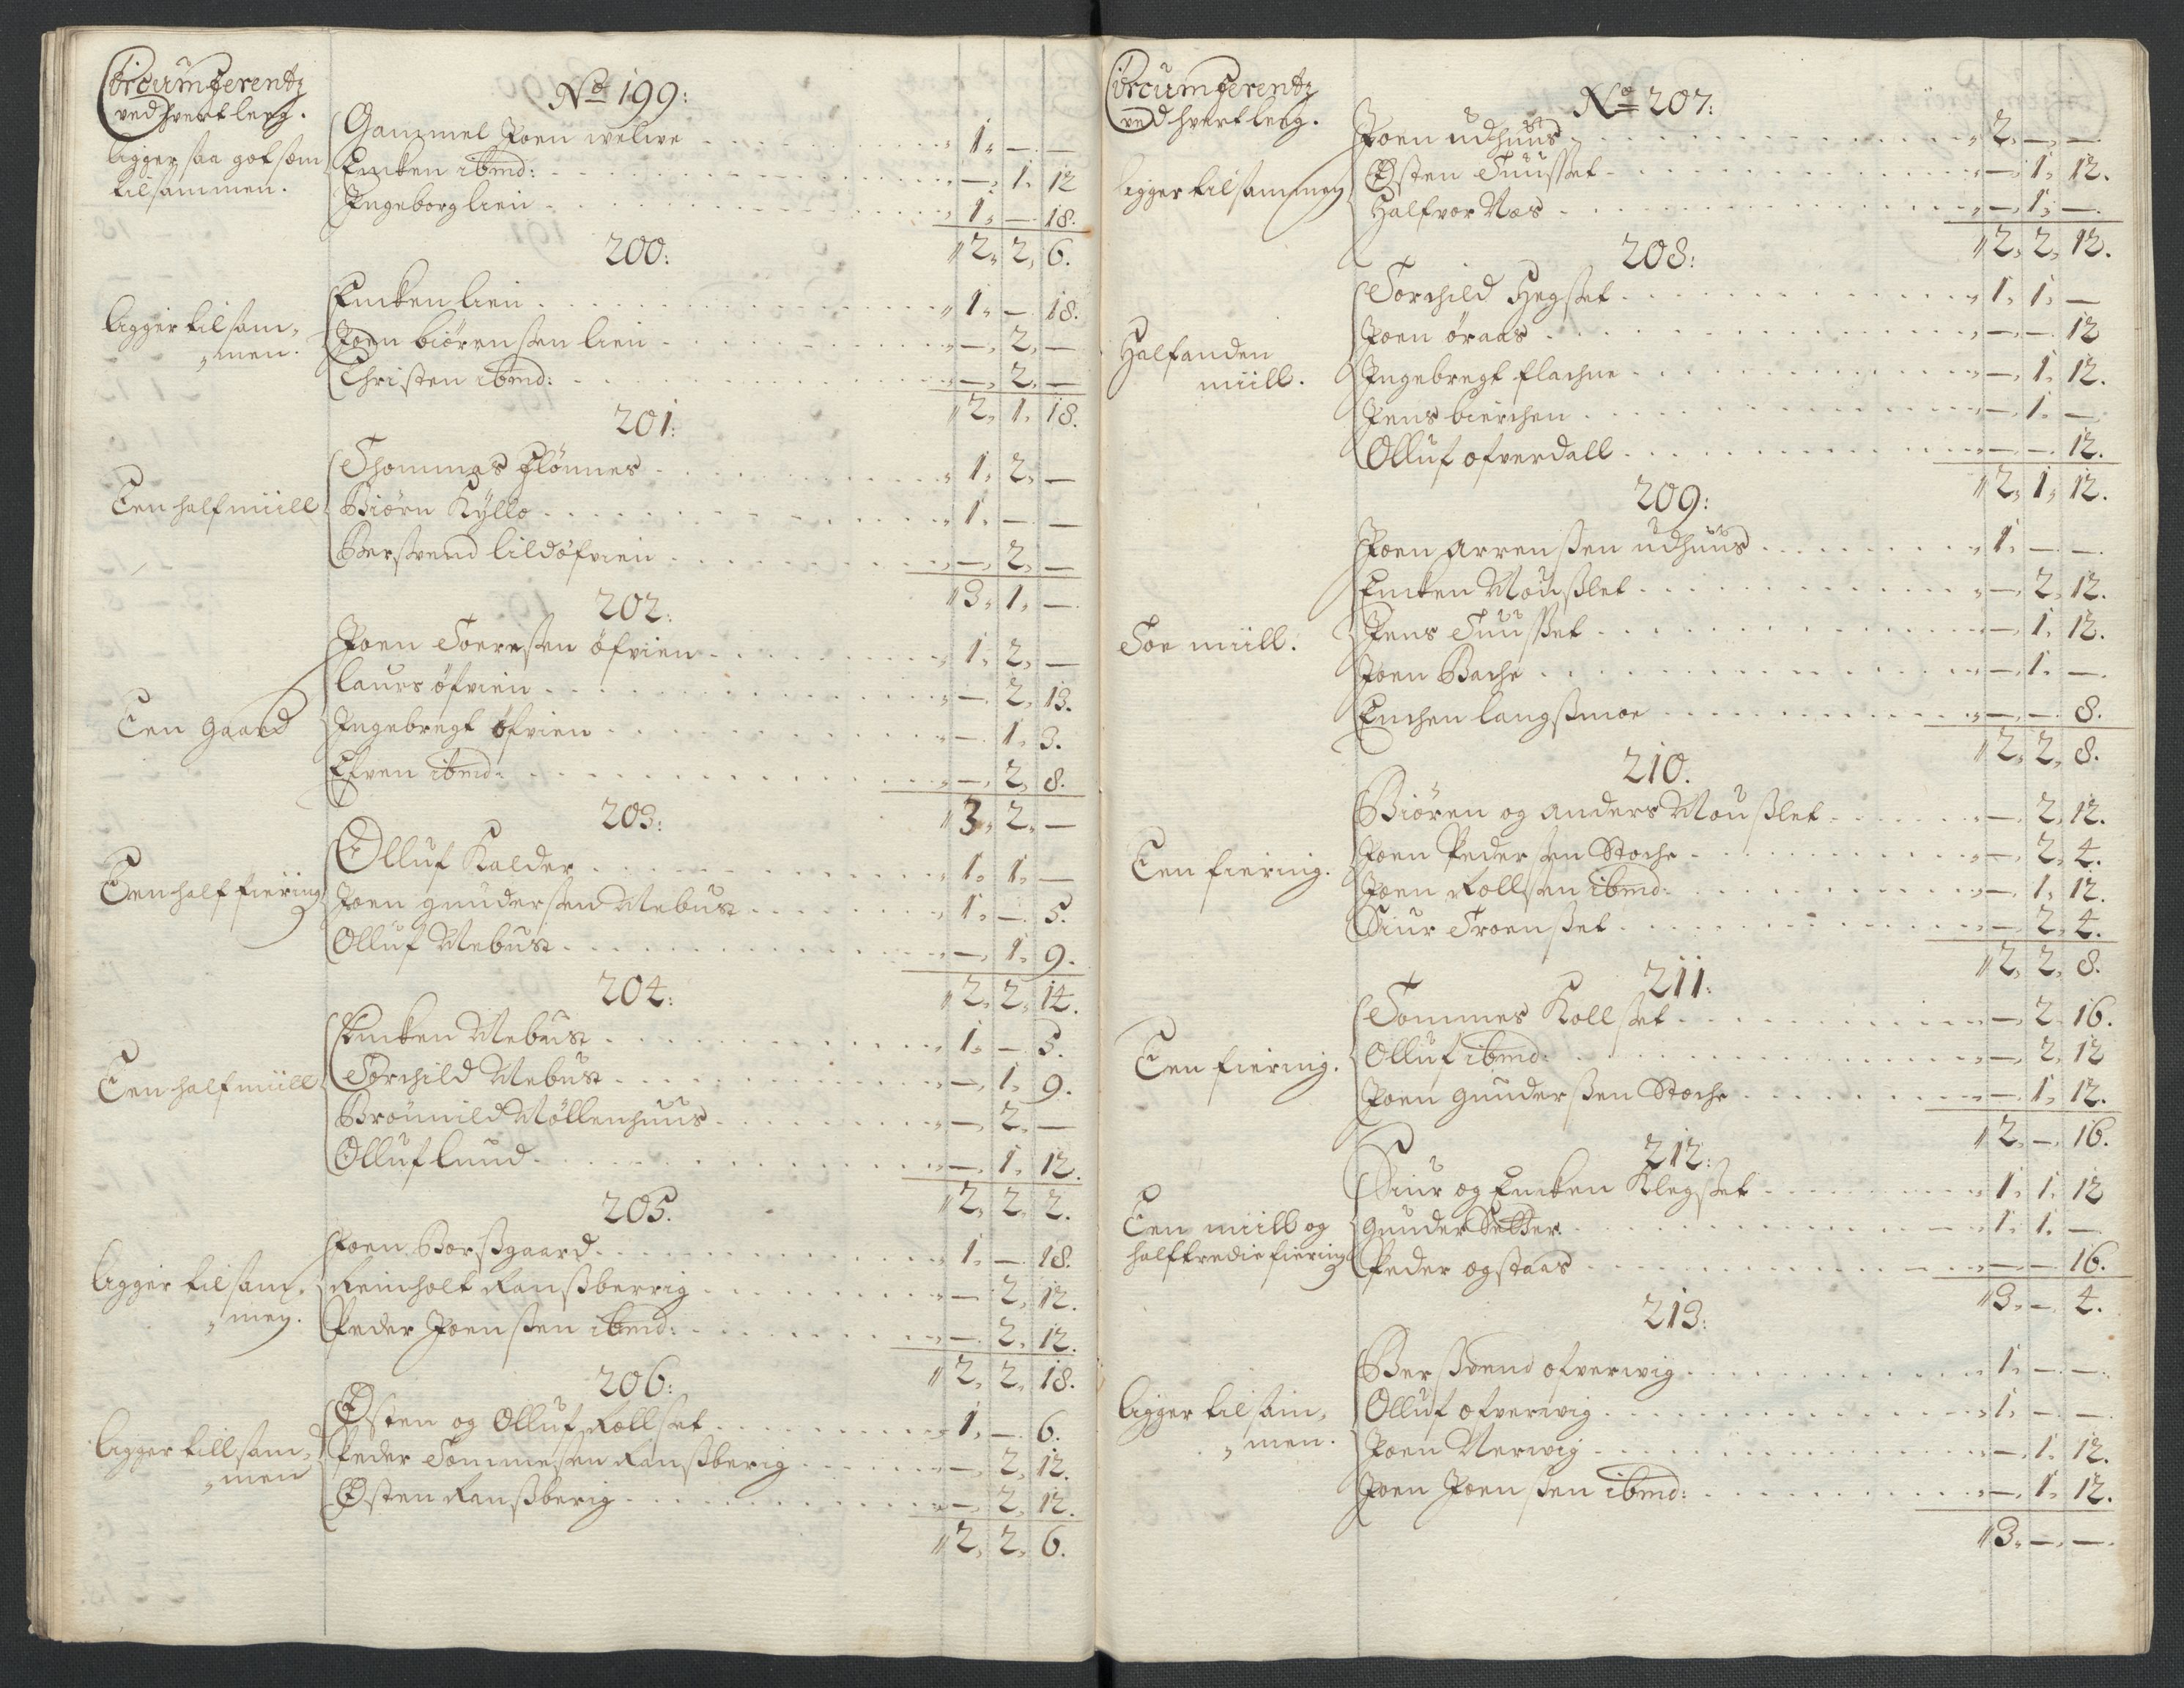 Circumferentz
ved hvert leeg.
No 199:
ligger saa got som
tilsammen.
Gammel Joen welwe - 1. — —
Encken ibmd: — 1. 12
Ingeborg lien 1. — 18.
2. 2. 6.
200:
ligger tilsam-
men.
Encken lien 1. — 18.
Joen biörensen lien — 2. —
Christen ibmd: — 2. —
2. 1. 18.
201:
Een half miill
Thommas Flönnes 1. 2. —
Biörn Kyllo 1. — —
Bersvend lildöfvien — 2. —
3. 1. —
202:
Een gaard
Joen Toersen öfvien 1. 2. —
laurs öfvien — 2. 13.
Ingebregt öfvien — 1. 3.
Efven ibmd: — 2. 8.
3. 2. —
203:
Een half fiering
Olluf Kalder 1. 1. —
Joen gundersen Mebust 1. — 5.
Olluf Mebust — 1. 9.
2. 2. 14.
204:
Een half miill
Encken Mebust 1. — 5.
Torchild Mebust — 1. 9.
Brönnild Möllenhuus — 2. —
Olluf lund — 1. 12.
2. 2. 2.
205.
ligger tilsam-
men.
Joen Borsgaard 1. — 18.
Reinholt Ransberrig — 2. 12.
Peder Joensen ibmd: — 2. 12.
2. 2. 18.
206:
ligger till sam-
men
Østen og Olluf Rollset 1. — 6.
Peder Tommesen Ransberig — 2. 12.
Østen Ransberig — 2. 12.
2. 2. 6.
Circumferentz
ved hvert leeg.
No 207:
ligger tilsammen
Joen udhuus 2. — —
Østen Tuusset — 1. 12.
Halfvor Næs — 1. —
2. 2. 12.
208:
Halfanden
miill.
Torchild Hegset 1. 1. —
Joen öraas — — 12
Ingebregt flachne — 1. 12.
Jens bierchen — 1. —
Olluf ofverdall — — 12.
2. 1. 12.
209:
Toe miill.
Joen Arrensen udhuus 1. — —
Encken Mouslet — 2. 12.
Jens Tuusset — 1. 12.
Joen Bache — 1. —
Enchen langsmoe — — 8.
2. 2. 8.
210.
Een fiering.
Biören og anders Mouslet — 2. 12.
Joen Pedersen Stoche — 2. 4.
Joen Rollsen ibmd: — 1. 12.
Siur Troenset — 2. 4.
2. 2. 8.
211:
Een fiering.
Tommes Kollset — 2. 16.
Olluf ibmd: — 2. 12
Joen gundersen Stoche — 1. 12.
2. — 16.
212:
Een miill og
halftredie fiering
Siur og Encken Klegset 1. 1. 12
gunder Setter 1. 1. —
Peder ogstaas — — 16.
3. — 4.
213:
ligger tilsam-
men.
Bersvend ofverwig 1. — —
Olluf ofverwig 1. — —
Joen Nerwig — 1. 12.
Joen Joensen ibmd: — 1. 12.
3. — —